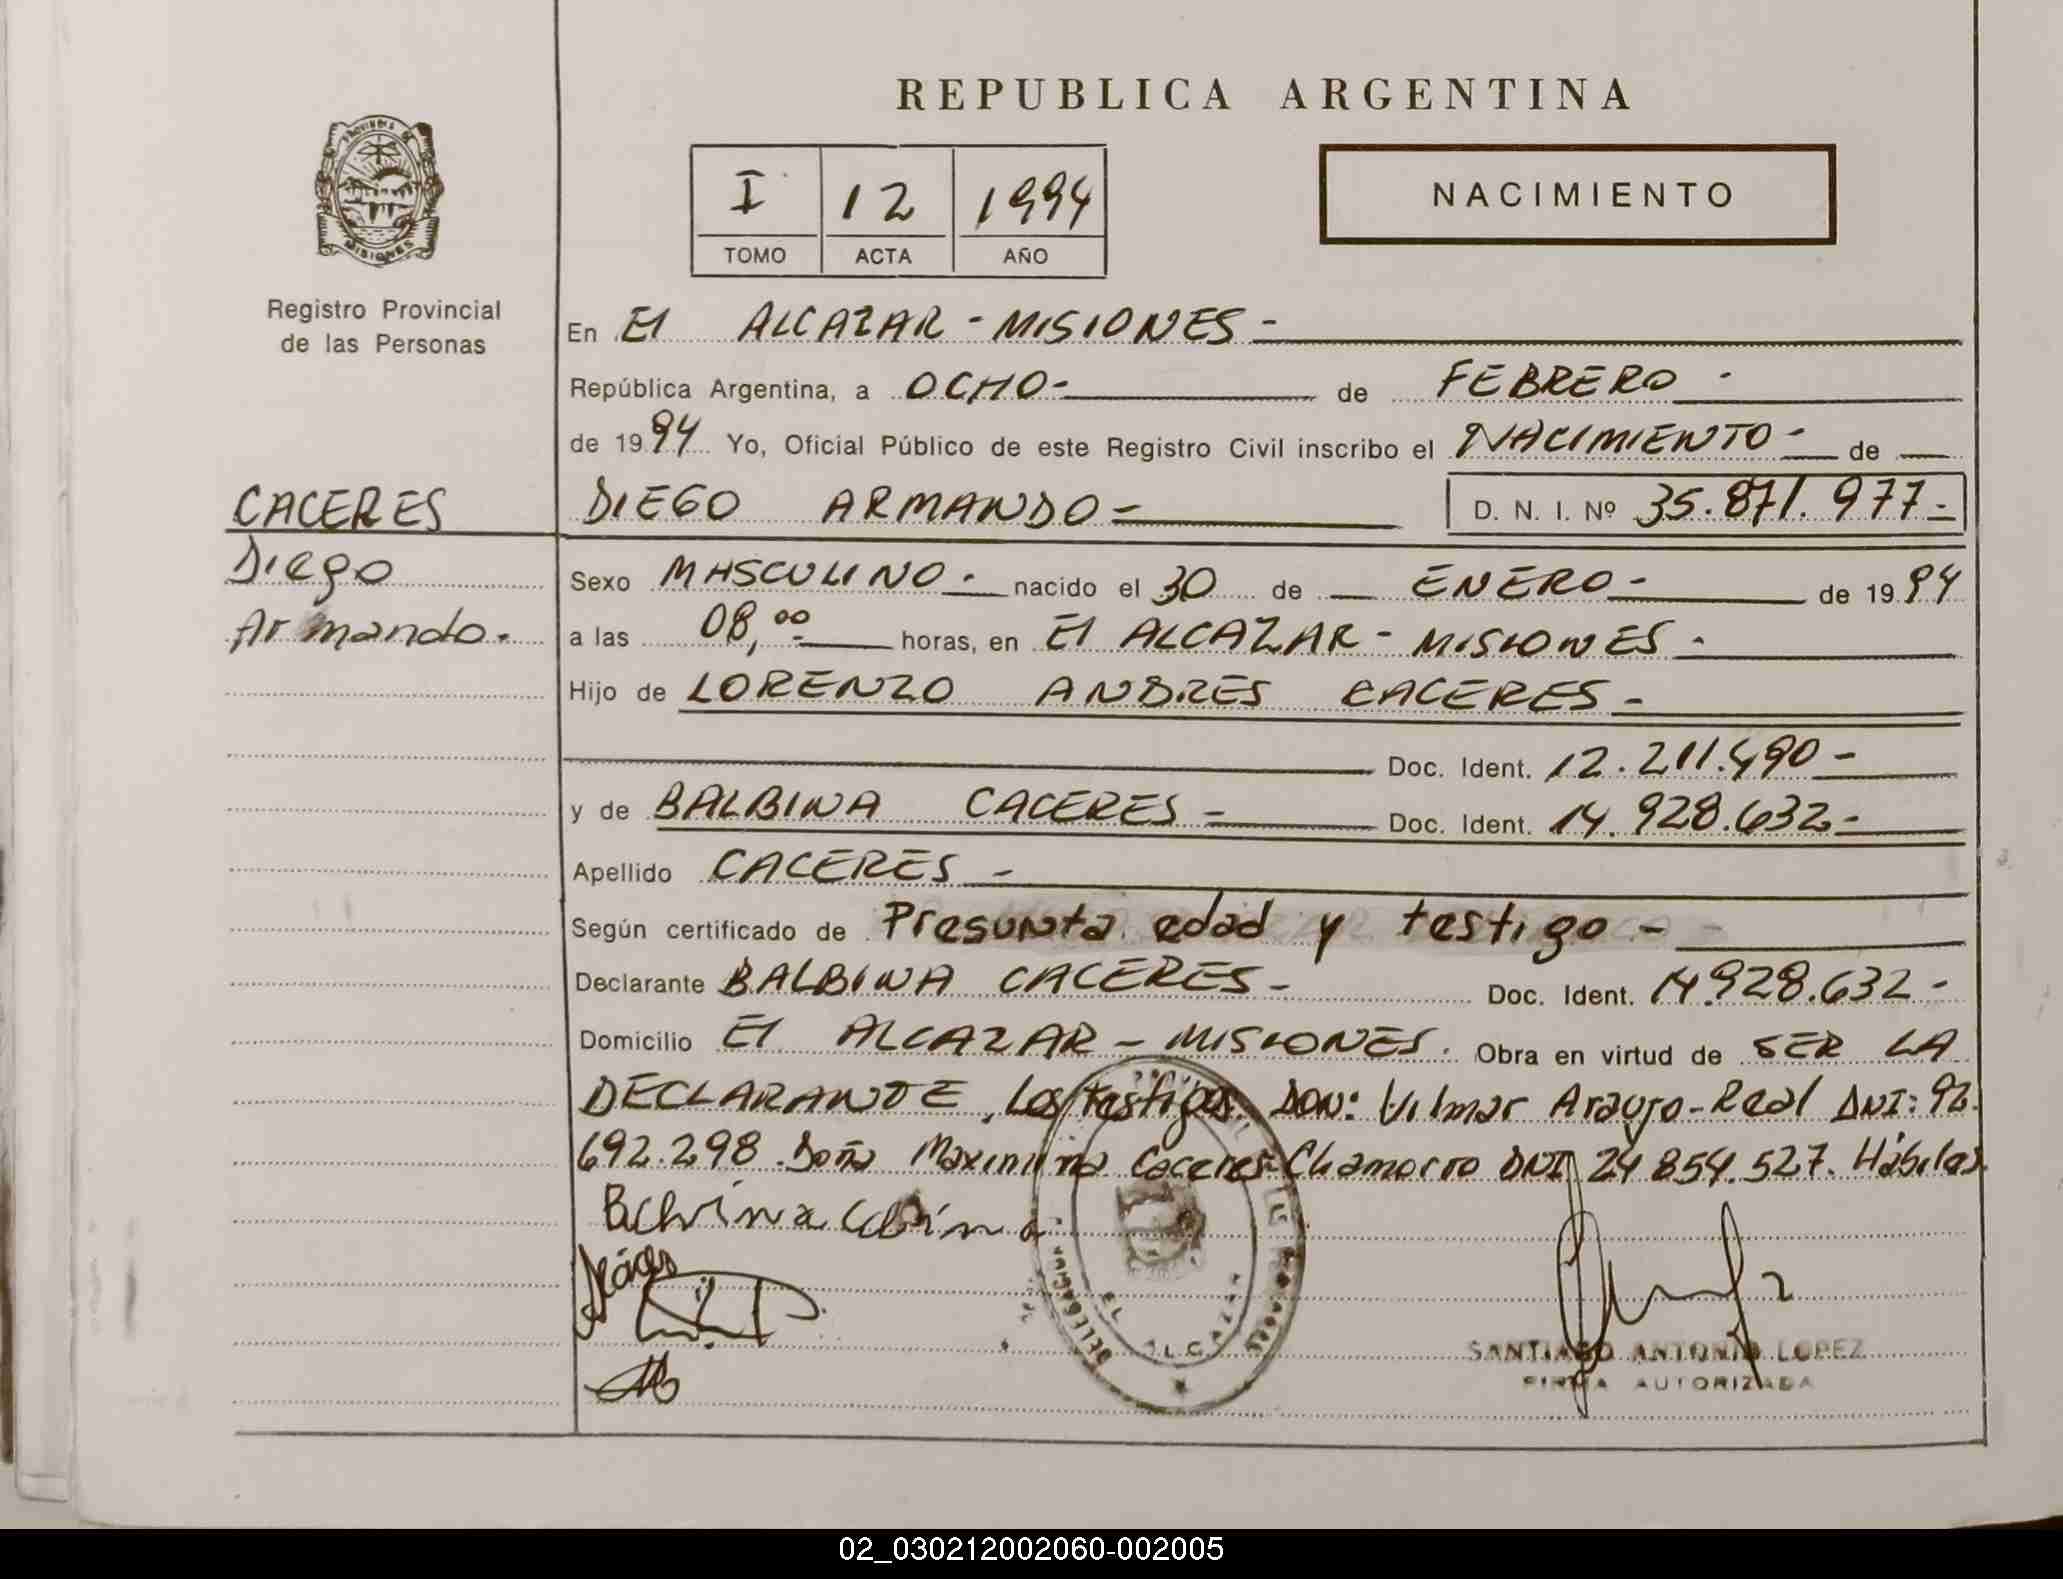 REPUBLICA ARGENTINA
PROVINCIA DE
MISIONES
Registro Provincial
de las Personas
I 12 1994
TOMO ACTA AÑO
NACIMIENTO
En El ALCAZAR - MISIONES -
República Argentina, a OCHO- de FEBRERO -
de 1994 Yo, Oficial Público de este Registro Civil inscribo el NACIMIENTO - de
CACERES
Diego
Armando.
DIEGO ARMANDO - D. N. I. Nº 35.871.977-
Sexo MASCULINO - nacido el 30 de ENERO - de 1994
a las 08,00 horas, en El ALCAZAR - MISIONES -
Hijo de LORENZO ANDRES CACERES -
Doc. Ident. 12.211.490 -
y de BALBINA CACERES - Doc. Ident. 14.928.632 -
Apellido CACERES -
Según certificado de Presunta edad y testigo -
Declarante BALBINA CACERES - Doc. Ident. 14.928.632 -
Domicilio El ALCAZAR - MISIONES. Obra en virtud de SER LA
DECLARANTE. Los testigos. DON: Vilmar Araujo-Real DNI: 92.
692.298. Doña Maximina Caceres-Chamorro DNI 24 854.527. Hábiles.
DELEGACION
EL ALCAZAR
SANTIAGO ANTONIO LOPEZ
FIRMA AUTORIZADA
02_030212002060-002005